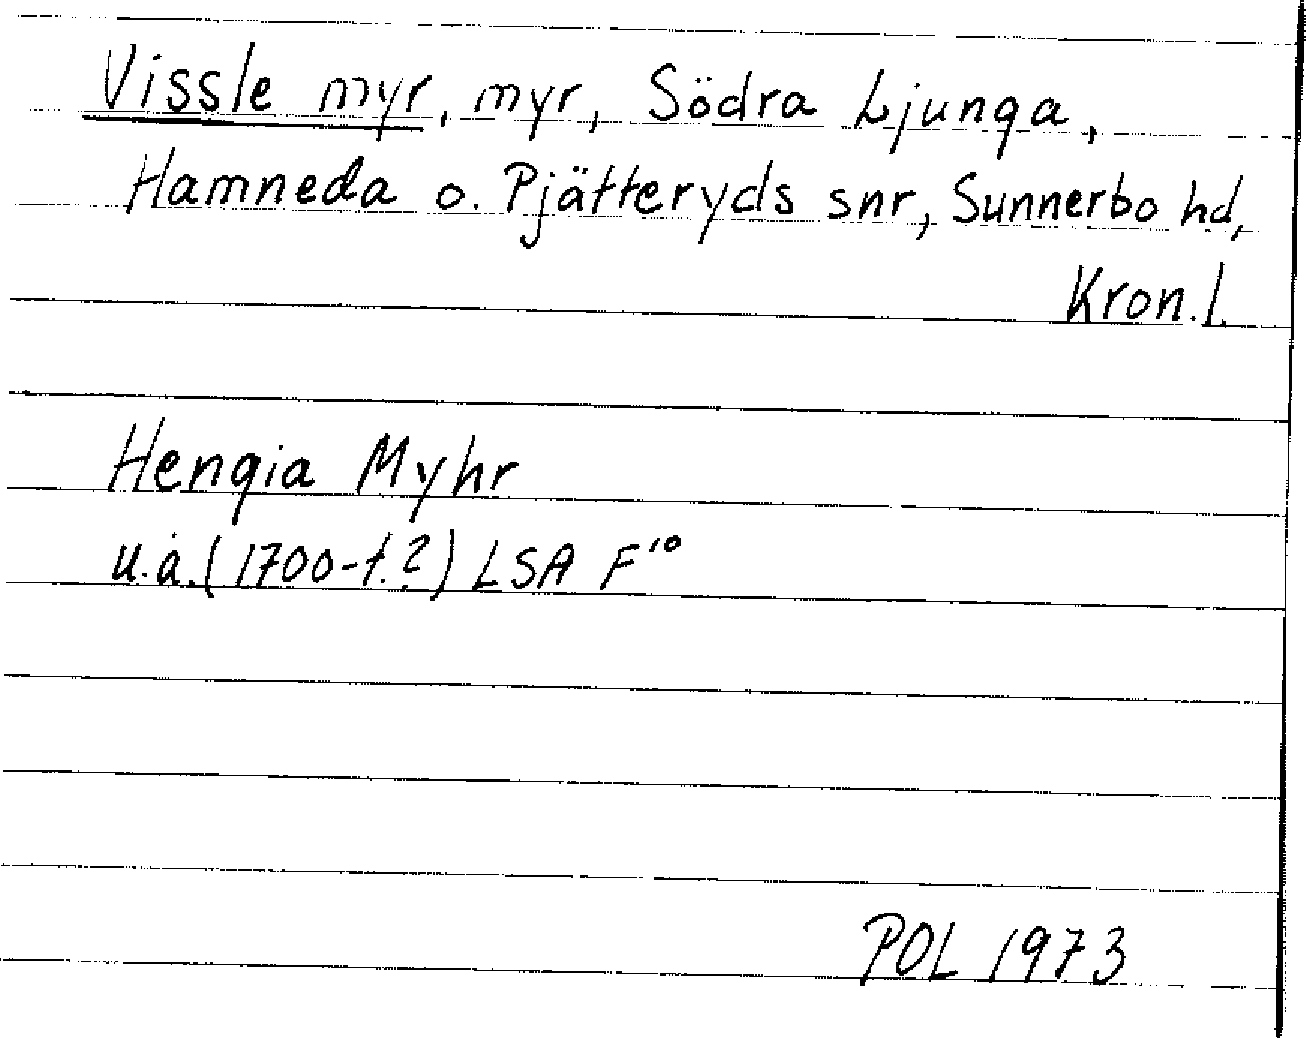 Vissle myr, myr, Södra Ljunga,
Hamneda o. Pjätteryds snr, Sunnerbo hd,
Kron. l.
Hengia Myhr
u.å. (1700-t.?) LSA F¹⁰
POL 1973